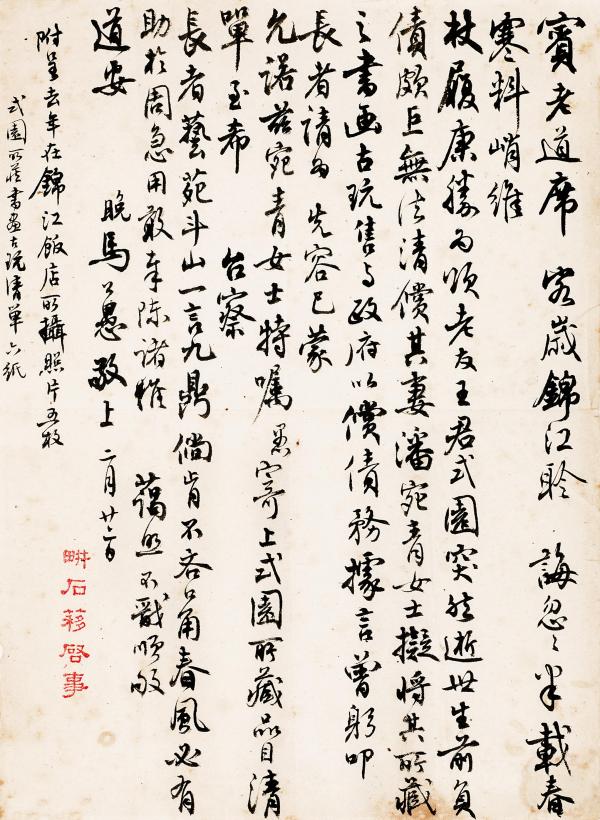 賓老道席 客歲錦江聆 誨忽々半載春
寒料峭維
杖履康勝為頌老友王君式園突然逝世生前負
債頗巨無法清償其妻潘宛青女士擬將其所藏
之書画古玩售与政府以償債務據言曾躬叩
長者請為先容已蒙
允諾茲宛青女士特囑愚寄上式園所藏品目清
單至希 台察
長者藝苑斗山一言九鼎倘肯不吝口角春風必有
助於周急用敢奉陳諸維 藹照不戩順頌
道安
晚馬公愚敬上 二月廿六日
附呈去年在錦江飯店所攝照片五枚
式園所藏書画古玩清單六紙
畊石簃啓事